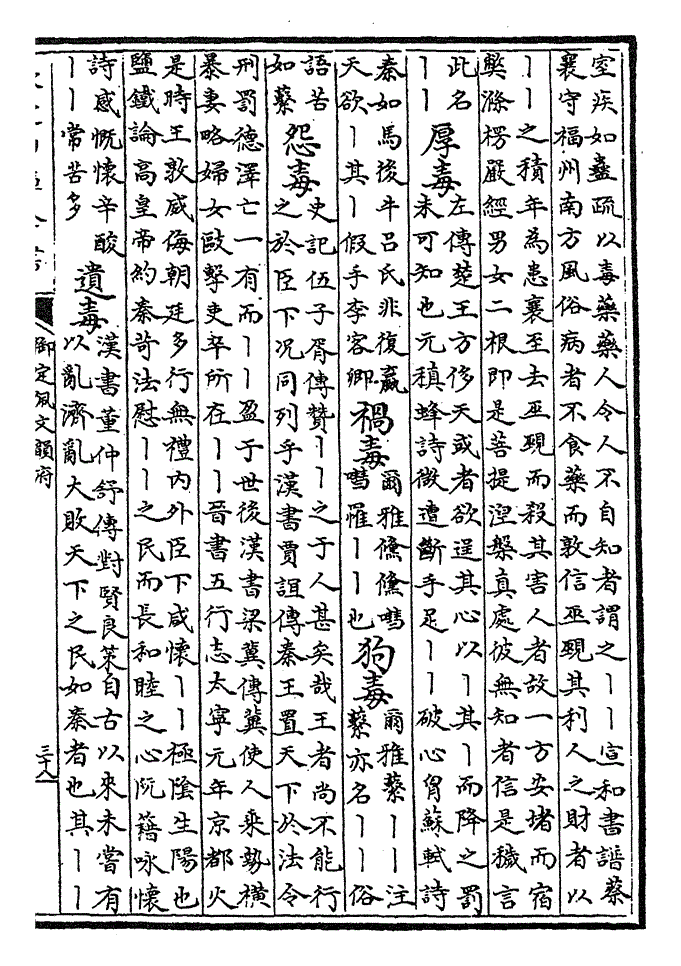 室疾如蠱疏以毒藥藥人令人不自知者謂之丨丨宣和書譜蔡
襄守福州南方風俗病者不食藥而敦信巫覡其利人之財者以
丨丨之積年為患襄至去巫覡而殺其害人者故一方安堵而宿
獘滌楞嚴經男女二根即是菩提涅槃真處彼無知者信是穢言
此名
丨丨
厚毒
左傳楚王方侈天或者欲逞其心以丨其丨而降之罰
未可知也元稹蜂詩微遭斷手足丨丨破心胷蘇軾詩
秦如馬後牛吕氏非復嬴
天欲丨其丨假手李客卿
禍毒
爾雅儵儵嘒
嘒罹丨丨也
狗毒
爾雅蘩丨丨注
蘩亦名丨丨俗
語苦
如蘩
怨毒
史記伍子胥傳贊丨丨之于人甚矣哉王者尚不能行
之於臣下况同列乎漢書賈誼傳秦王置天下於法令
刑罰德澤亡一有而丨丨盈于世後漢書梁冀傳冀使人乘勢橫
暴妻略婦女毆擊吏卒所在丨丨晉書五行志太寧元年京都火
是時王敦威侮朝廷多行無禮内外臣下咸懷丨丨極陰生陽也
鹽鐵論高皇帝約秦苛法慰丨丨之民而長和睦之心阮籍咏懷
詩感慨懷辛酸
丨丨常苦多
遺毒
漢書董仲舒傳對賢良策自古以來未嘗有
以亂濟亂大敗天下之民如秦者也其丨丨
御定佩文韻府
三十八